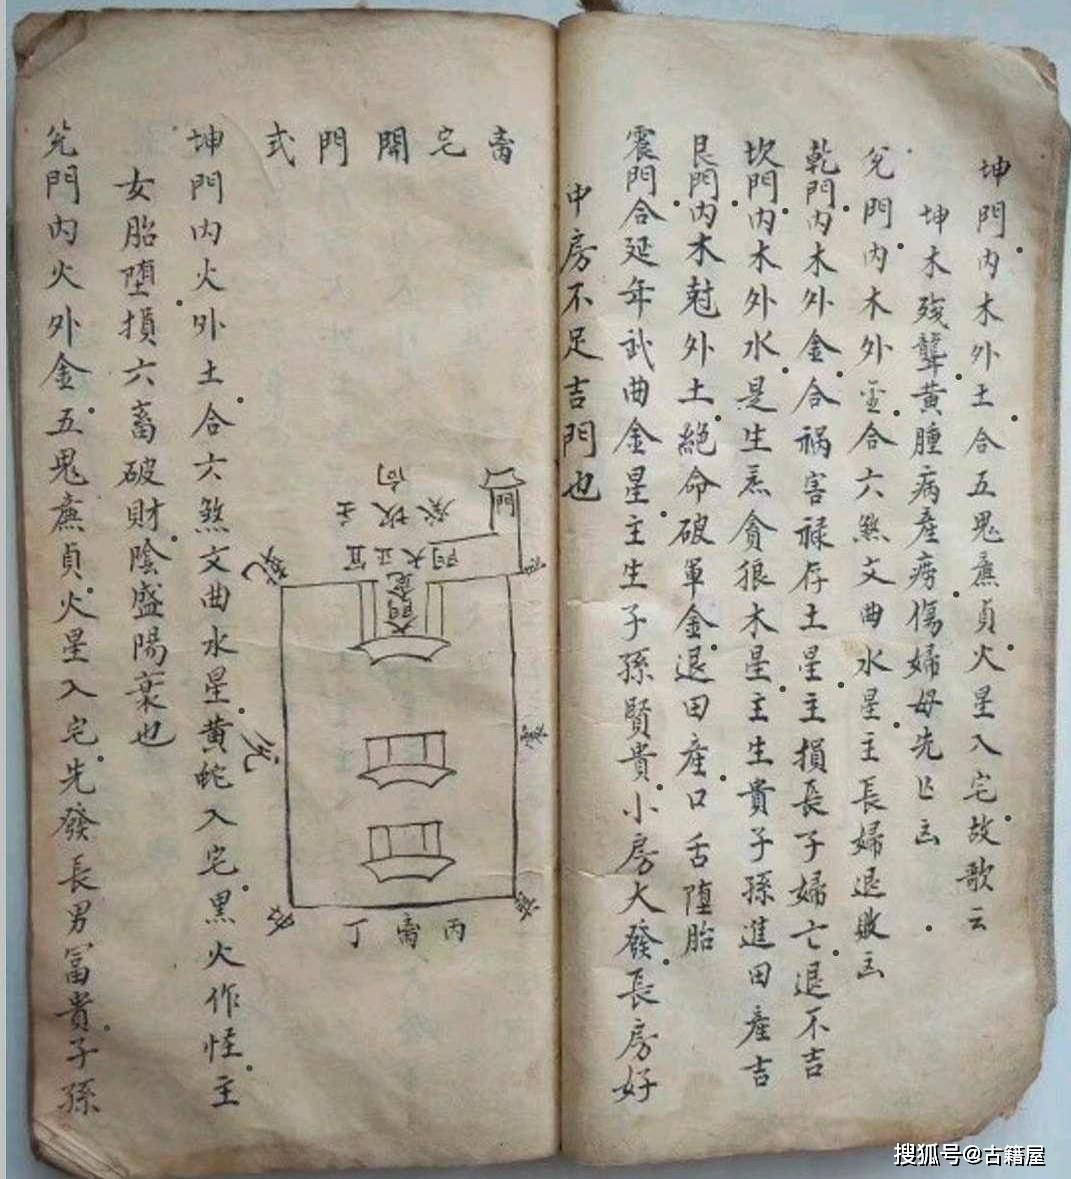 坤門內木外土合五鬼廉貞火星入宅故歌云
坤木殘聾黃腫病產癆傷婦母先亡凶
兌門內木外金合六煞文曲水星主長婦退敗凶
乾門內木外金合禍害祿存土星主損長子婦亡退不吉
坎門內木外水是生炁貪狼木星主生貴子孫進田產吉
艮門內木尅外土絕命破軍金退田產口舌墮胎
震門合延年武曲金星主生子孫賢貴小房大發長房好
中房不足吉門也
离宅開門式
門
向
癸坎主
門大正宜
乾
兌
丙离丁
坤門內火外土合六煞文曲水星黃蛇入宅黑火作怪主
女胎墮損六畜破財陰盛陽衰也
兌門內火外金五鬼廉貞火星入宅先發長男冨貴子孫
搜狐号@古籍屋